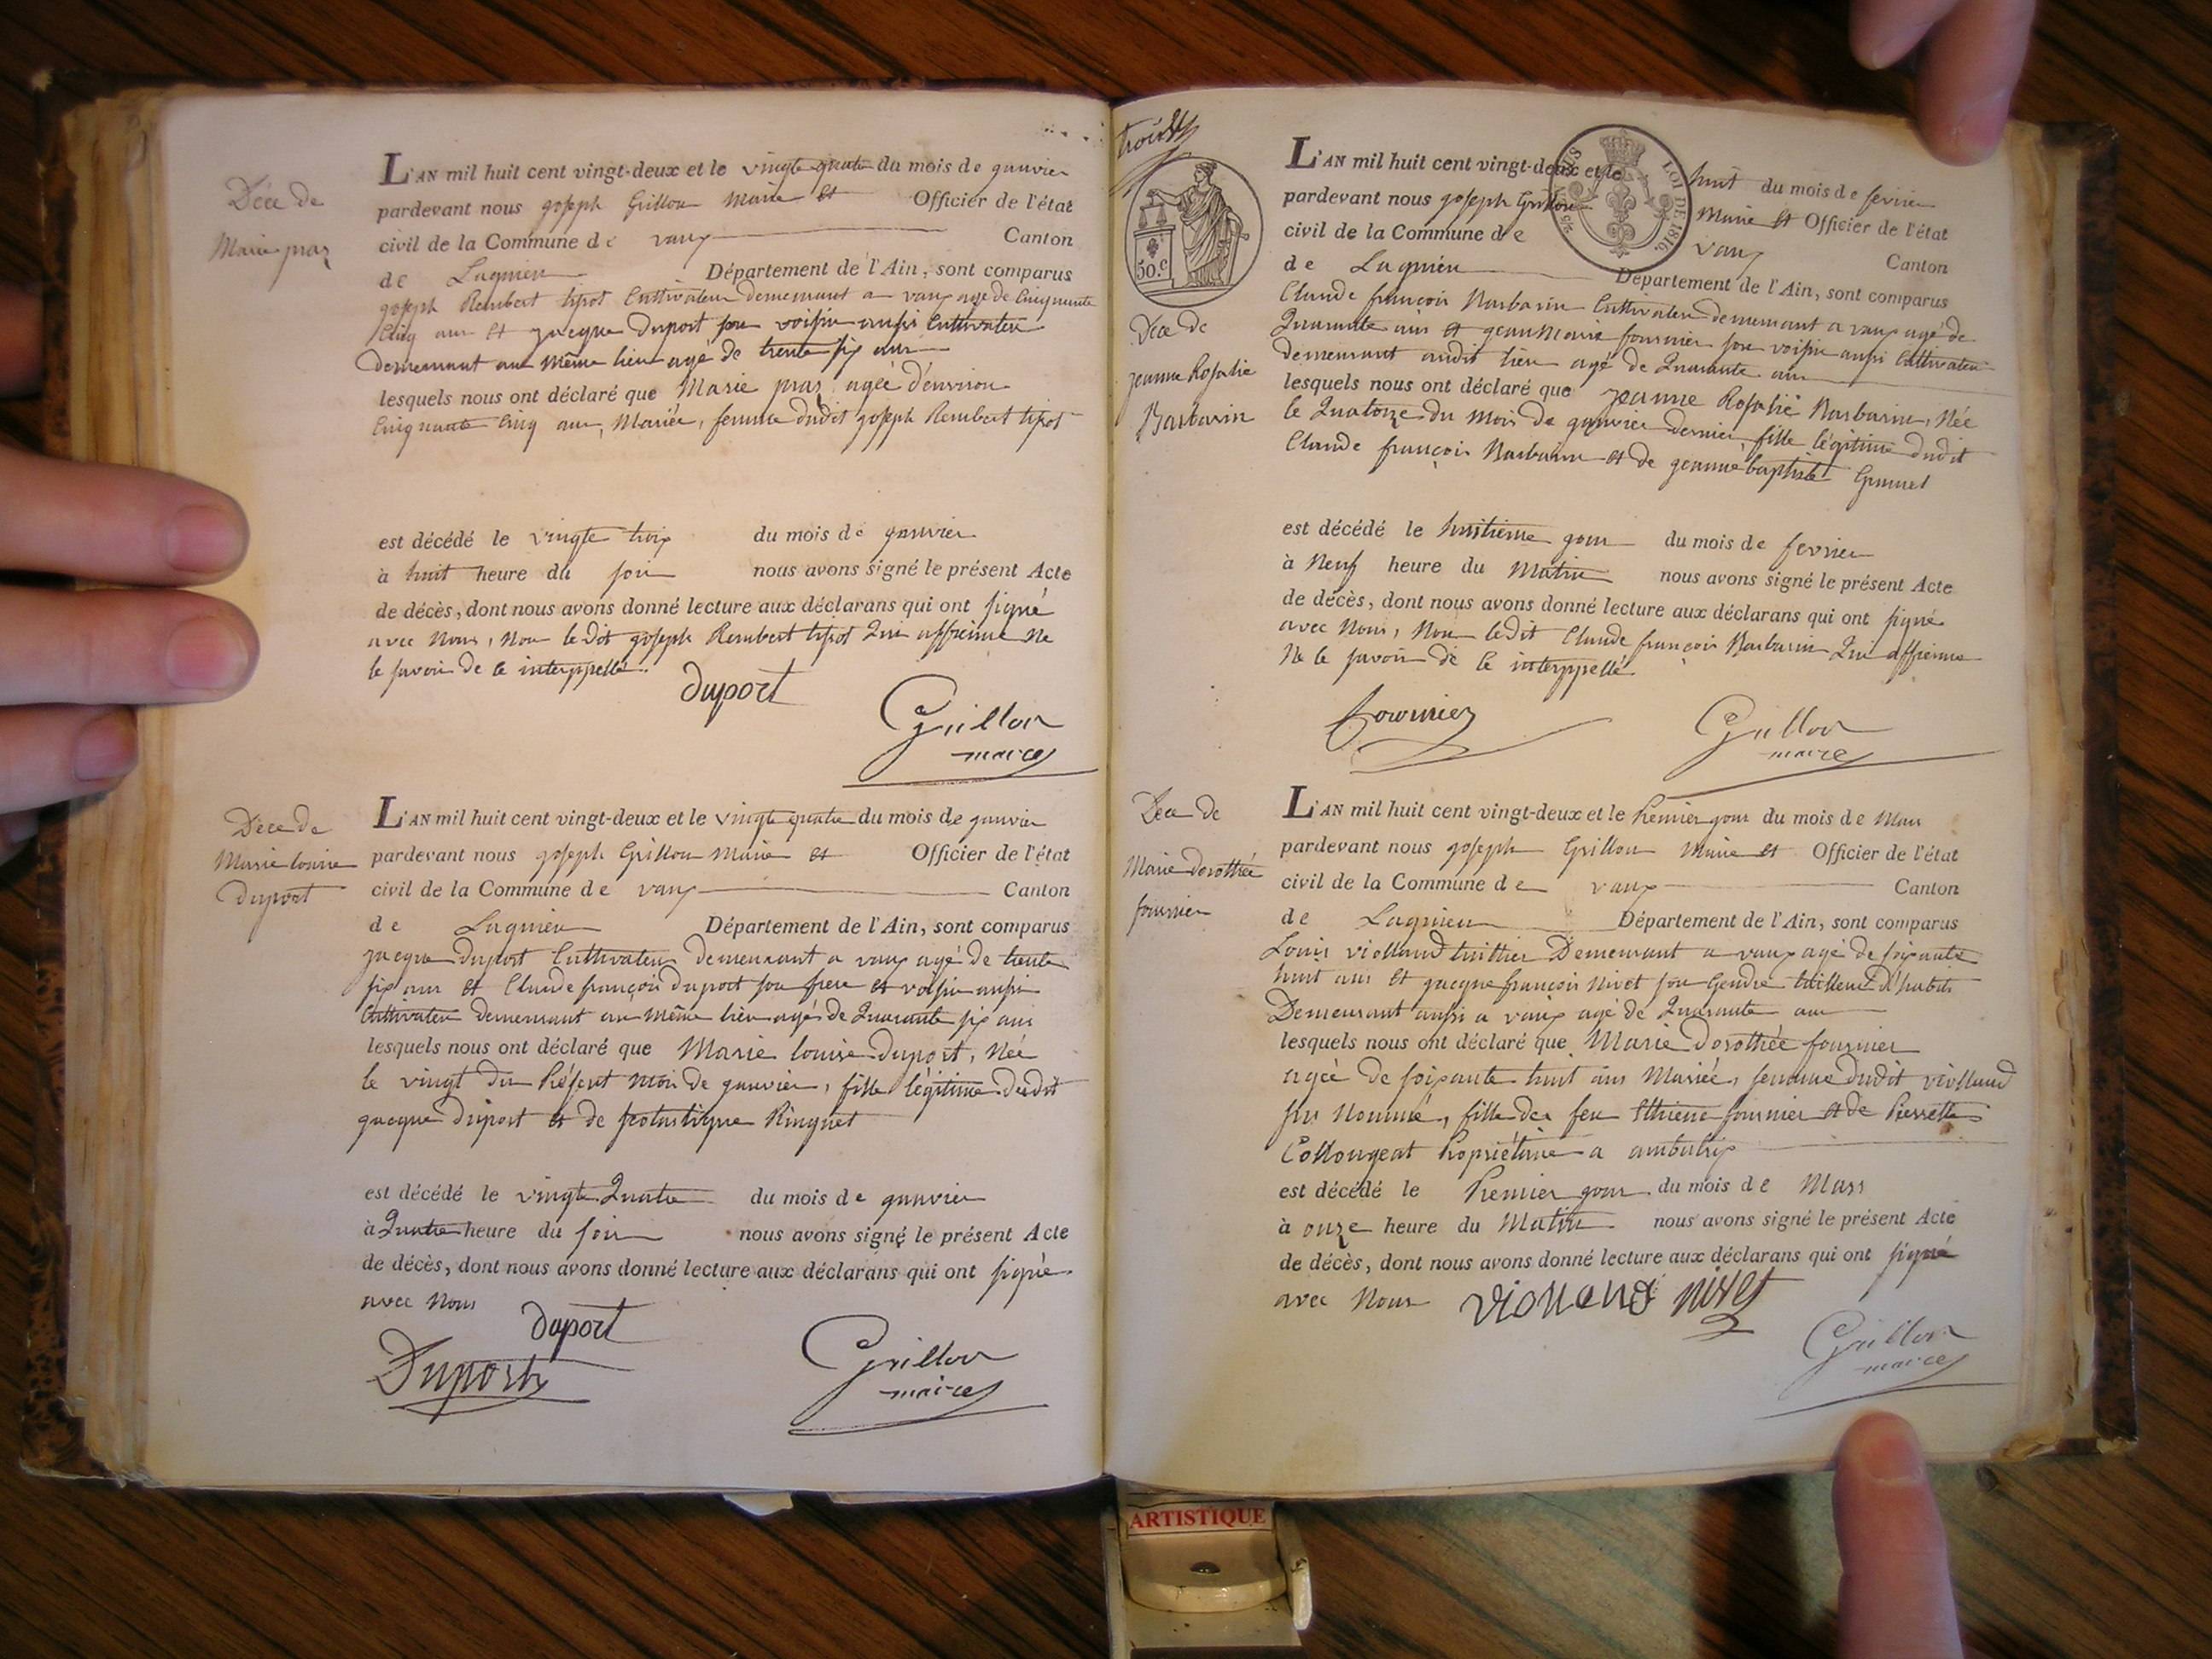 Déce de
Marie praz
L'AN mil huit cent vingt-deux et le vingte quatre du mois de janvier
pardevant nous joseph Grillon Maire et Officier de l'état
civil de la Commune de vaux Canton
de Lagnieu Département de l'Ain, sont comparus
joseph Rembert tipot Cultivateur demeurant a vaux age de Cinquante
Cinq ans et jacque Duport son voisin aussi Cultivateur
demeurant au même lieu agé de trente six ans
lesquels nous ont déclaré que Marie praz agée d'environ
Cinquante Cinq ans, Mariée, femme dudit joseph Rembert tipot
est décédé le vingte troix du mois de janvier
à huit heure du soir nous avons signé le présent Acte
de décès, dont nous avons donné lecture aux déclarans qui ont signé
avec Nous, Non le dit joseph Rembert tipot Qui affirme Ne
le savoir de ce interppellé.
duport
Grillon
maire
Déce de
Marie louise
Duport
L'AN mil huit cent vingt-deux et le vingte quatre du mois de janvier
pardevant nous joseph Grillon Maire et Officier de l'état
civil de la Commune de vaux Canton
de Lagnieu Département de l'Ain, sont comparus
jacque Duport Cultivateur demeurant a vaux agé de trente
six ans et Claude françois duport son frere et voisin aussi
Cultivateur demeurant au même lieu agé de Quarante six ans
lesquels nous ont déclaré que Marie louise Duport, Née
le vingt du Présent mois de janvier, fille légitime dudit
jacque Duport et de scolastique Ringuet
est décédé le vingte Quatre du mois de janvier
à Quatre heure du soir nous avons signé le présent Acte
de décès, dont nous avons donné lecture aux déclarans qui ont signé
avec Nous
duport
Duport
Grillon
maire
trois
50.c
LOI DE 1816
Déce de
jeanne Rosalie
Barbarin
L'AN mil huit cent vingt-deux et le huit du mois de fevrier
pardevant nous joseph Grillon Maire et Officier de l'état
civil de la Commune de vaux Canton
de Lagnieu Département de l'Ain, sont comparus
Claude françois Barbarin Cultivateur demeurant a vaux agé de
Quarante ans et jean Marie fournier son voisin aussi Cultivateur
demeurant audit lieu agé de Quarante ans
lesquels nous ont déclaré que jeanne Rosalie Barbarin, Née
le Quatorze du Mois de janvier dernier, fille légitime dudit
Claude françois Barbarin et de jeanne baptiste
est décédé le huitieme jour du mois de fevrier
à Neuf heure du Matin nous avons signé le présent Acte
de décès, dont nous avons donné lecture aux déclarans qui ont signé
avec Nous, Non ledit Claude françois Barbarin Qui affirme
Ne le savoir de ce interppellé
fournier
Grillon
maire
Déce de
Marie dorothée
fournier
L'AN mil huit cent vingt-deux et le Premier jour du mois de Mars
pardevant nous joseph Grillon Maire et Officier de l'état
civil de la Commune de vaux Canton
de Lagnieu Département de l'Ain, sont comparus
Louis viollaud Demeurant a vaux agé de soixante
huit ans et jacque françois Nivet son Gendre tailleur d'habits
Demeurant aussi a vaux agé de Quarante ans
lesquels nous ont déclaré que Marie Dorothée fournier
agée de soixante huit ans Mariée, femme dudit viollaud
sus Nommé, fille de feu Ethiene fournier et de Pierrette
Collougeat Propriétaire a ambutrix
est décédé le Premier jour du mois de Mars
à onze heure du Matin nous avons signé le présent Acte
de décès, dont nous avons donné lecture aux déclarans qui ont signé
avec Nous viollaud nivet
Grillon
maire
ARTISTIQUE